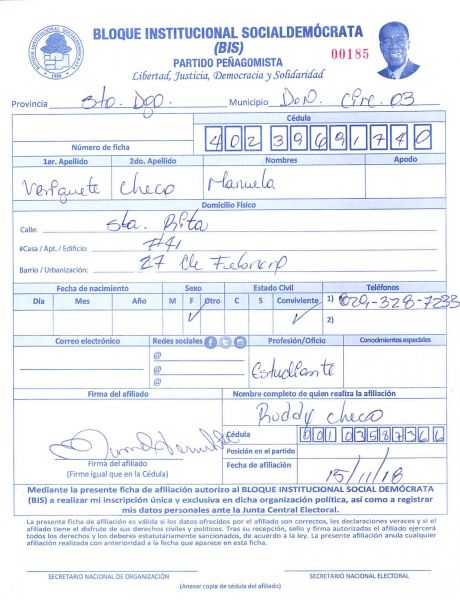 BLOQUE INSTITUCIONAL SOCIALDEMÓCRATA
(BIS)
PARTIDO PEÑAGOMISTA
00185
Libertad, Justicia, Democracia y Solidaridad
Provincia Sto. Dgo. Municipio D.N. Circ. 03
Cédula
Número de ficha 402 3969174 0
1er. Apellido 2do. Apellido Nombres Apodo
Veriguete Checo Manuela
Domicilio Físico
Calle: Sta. Rita
#Casa / Apt. / Edificio: #41
Barrio / Urbanización: 27 de Febrero
Fecha de nacimiento Sexo Estado Civil Teléfonos
Día Mes Año M F Otro C S Conviviente 1) 829-328-7233
✓ ✓ 2)
Correo electrónico Redes sociales Profesión/Oficio Conocimientos especiales
@
@ Estudiante
@
Firma del afiliado Nombre completo de quien realiza la afiliación
Ruddy Checo
Cédula 001 0358736 6
Posición en el partido
Firma del afiliado
(Firme igual que en la Cédula)
Fecha de afiliación 15/11/18
Mediante la presente ficha de afiliación autorizo al BLOQUE INSTITUCIONAL SOCIAL DEMÓCRATA
(BIS) a realizar mi inscripción única y exclusiva en dicha organización política, así como a registrar
mis datos personales ante la Junta Central Electoral.
La presente ficha de afiliación es válida si los datos ofrecidos por el afiliado son correctos, las declaraciones veraces y si el
afiliado tiene el disfrute de sus derechos civiles y políticos. Tras su recepción, sello y firma autorizadas el afiliado ejercerá
todos los derechos y los deberes estatutariamente sancionados, de acuerdo a la ley. La presente afiliación anula cualquier
afiliación realizada con anterioridad a la fecha que aparece en esta ficha.
SECRETARIO NACIONAL DE ORGANIZACIÓN SECRETARIO NACIONAL ELECTORAL
(Anexar copia de cédula del afiliado)